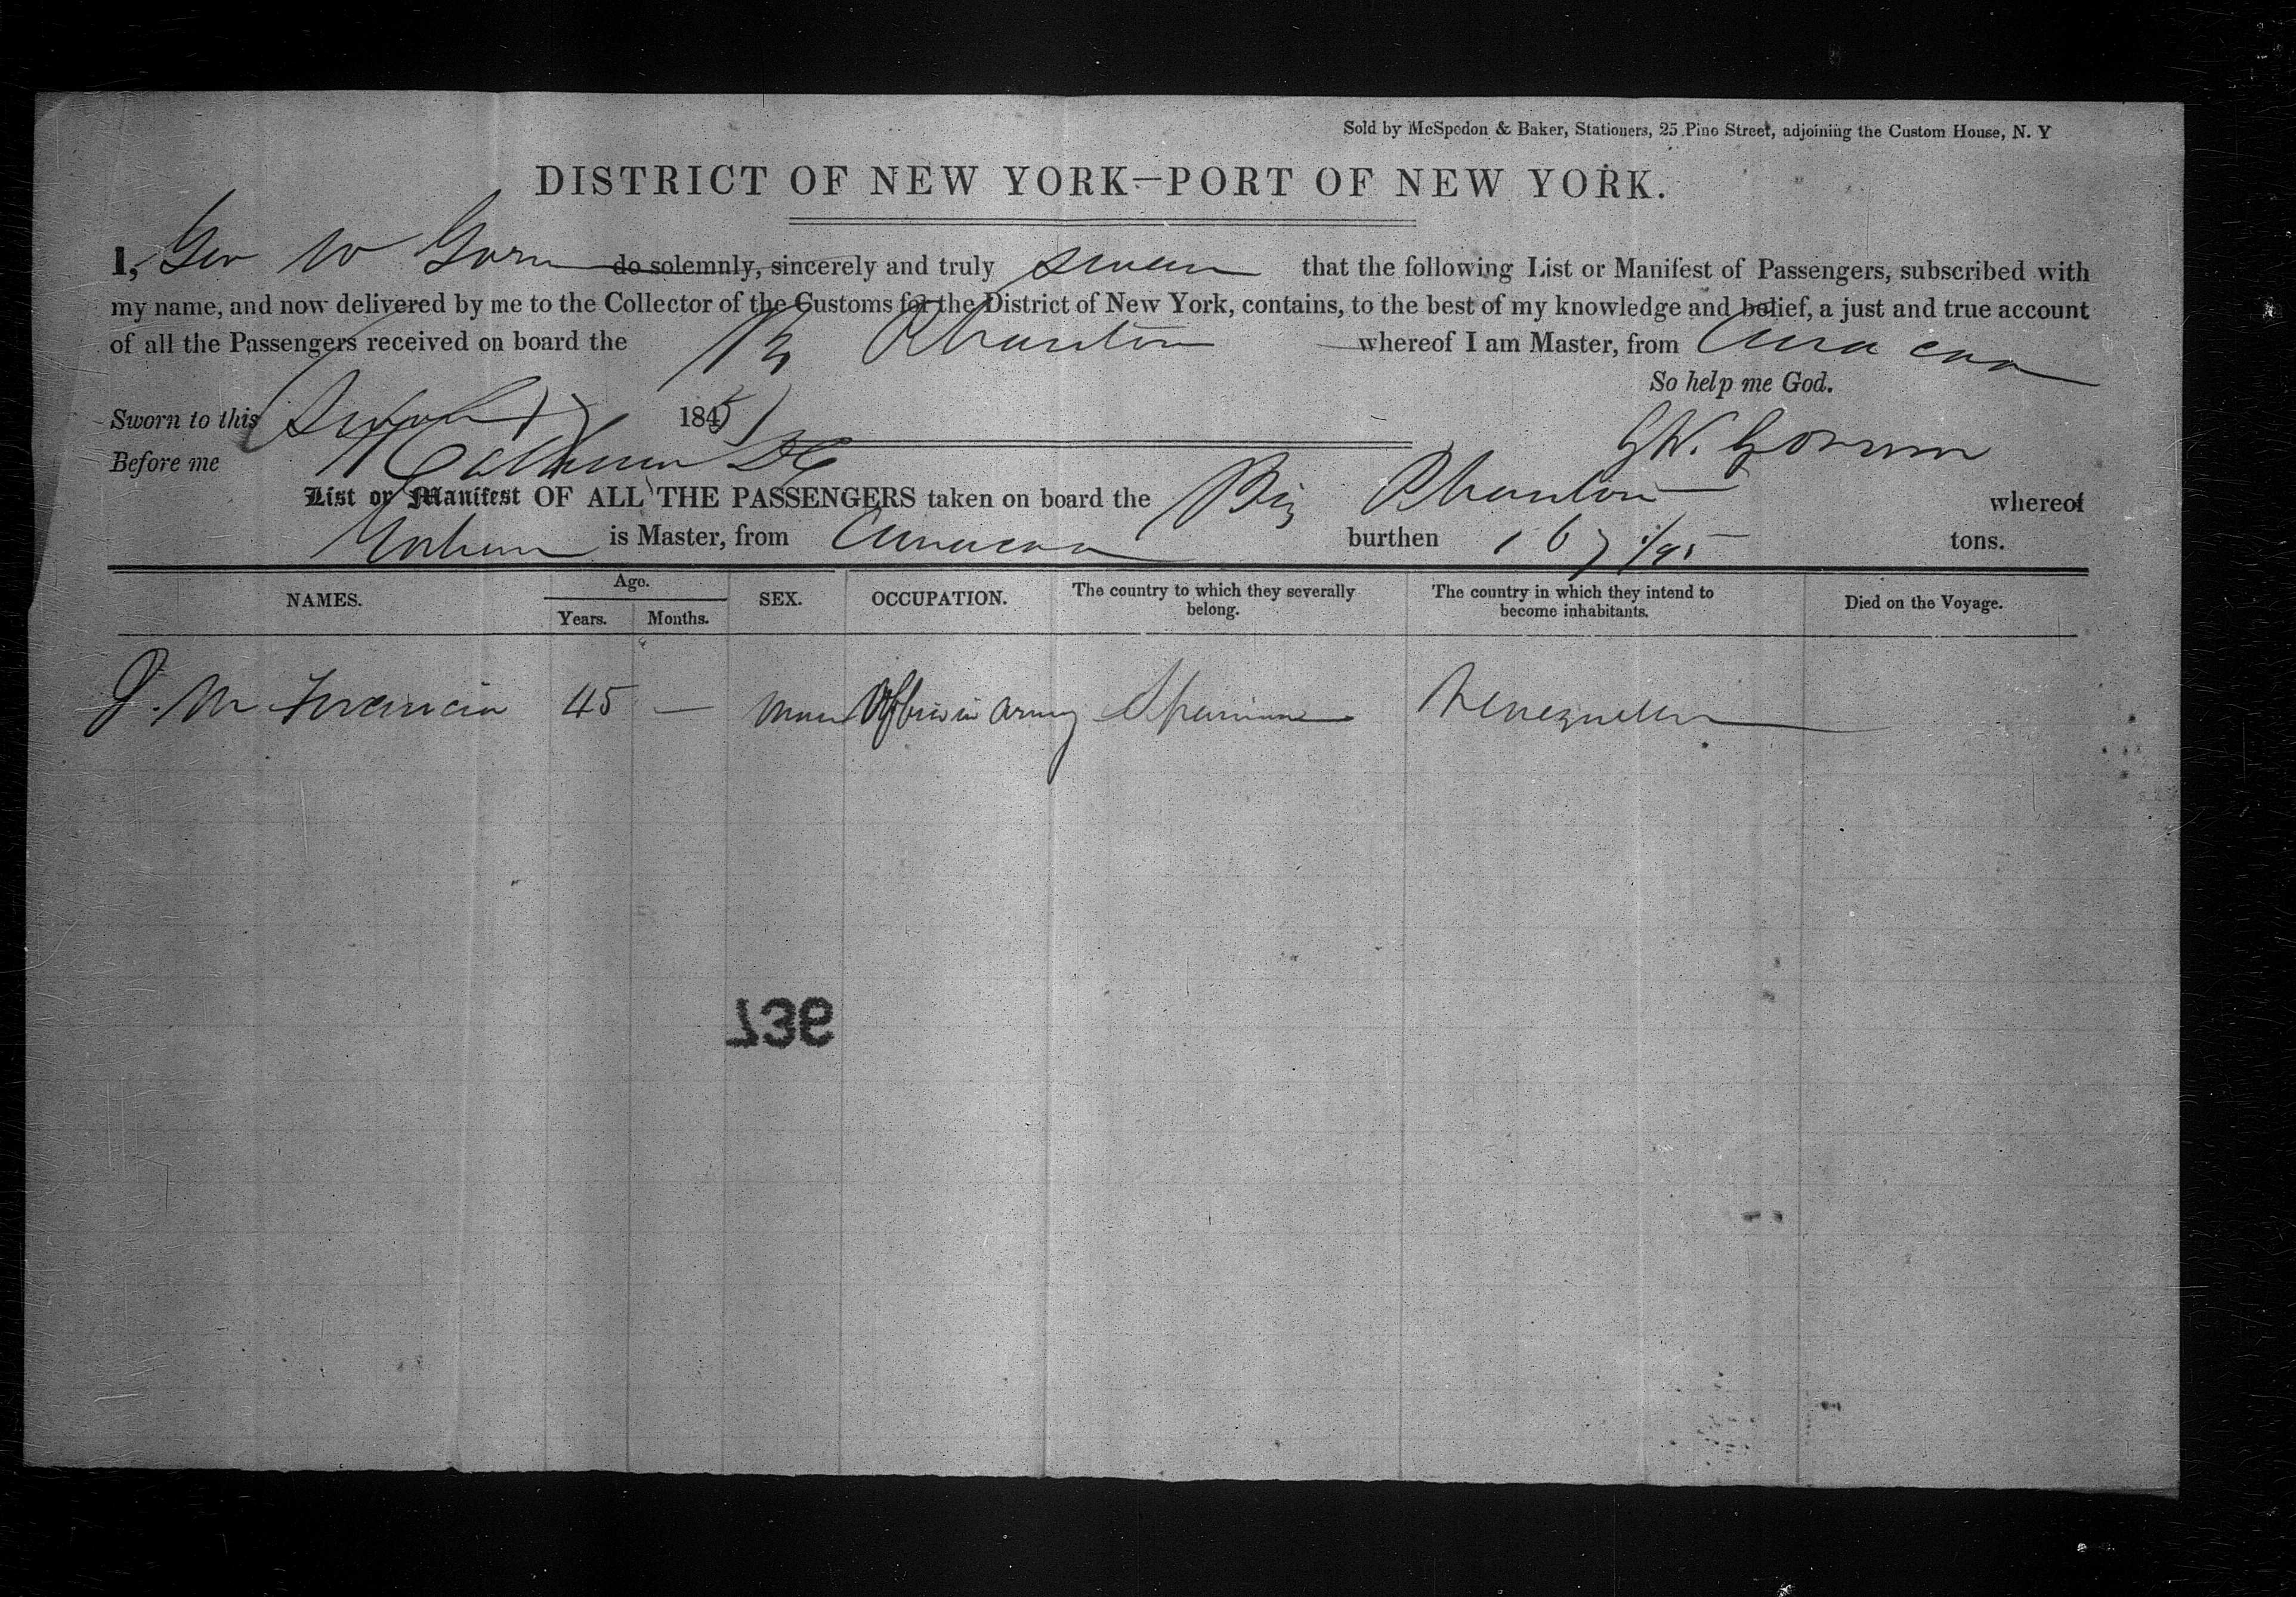 Sold by McSpedon & Baker, Stationers, 25 Pine Street, adjoining the Custom House, N. Y
DISTRICT OF NEW YORK—PORT OF NEW YORK.
I, Geo W do solemnly, sincerely and truly swear that the following List or Manifest of Passengers, subscribed with
my name, and now delivered by me to the Collector of the Customs for the District of New York, contains, to the best of my knowledge and belief, a just and true account
of all the Passengers received on board the whereof I am Master, from Curacoa
So help me God.
Sworn to this 184
G W.
Before me
List or Manifest OF ALL THE PASSENGERS taken on board the Brig whereof
is Master, from Curacoa burthen 167 /95 tons.
NAMES. Age. Years. Months. SEX. OCCUPATION. The country to which they severally belong. The country in which they intend to become inhabitants. Died on the Voyage.
J. M 45 — Man Officer in Army Venezuela
736